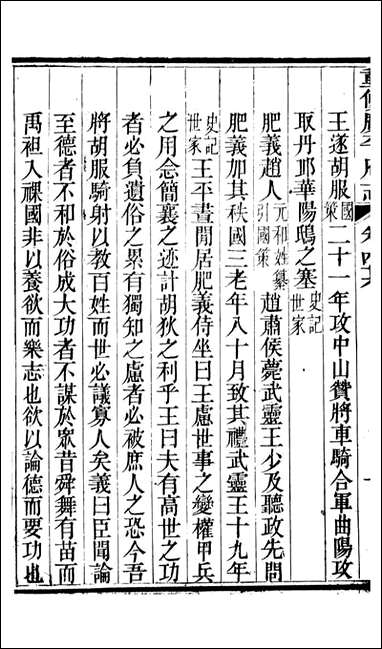 王遂胡服國策二十一年攻中山贊將車騎合軍曲陽攻
取丹邱華陽鴟之塞史記世家
肥義趙人元和姓纂引國策趙肅侯薨武靈王少及聽政先問
肥義加其秩國三老年八十月致其禮武靈王十九年
史記世家王平晝閒居肥義侍坐曰王慮世事之變權甲兵
之用念簡襄之迹計胡狄之利乎王曰夫有高世之功
者必負遺俗之累有獨知之慮者必被庶人之恐今吾
將胡服騎射以教百姓而世必議寡人矣義曰臣聞論
至德者不和於俗成大功者不謀於眾昔舜舞有苗而
禹袒入裸國非以養欲而樂志也欲以論德而要功也